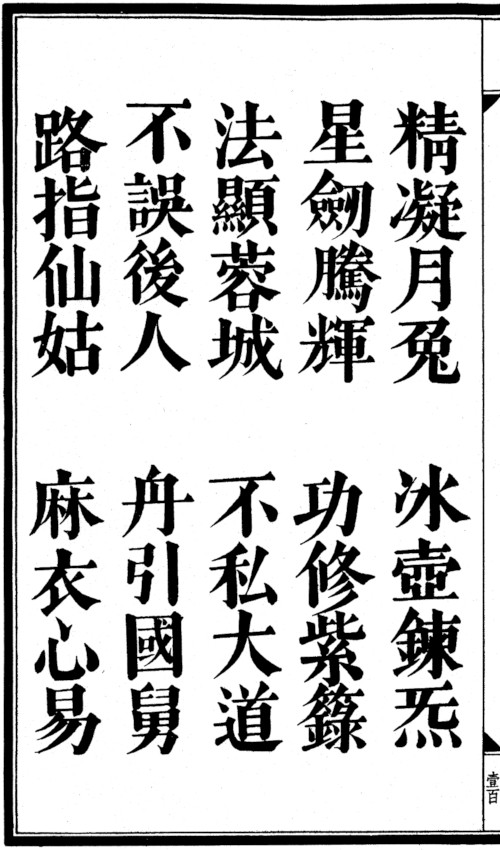 精凝月兔　冰壺鍊炁
星劒騰輝　功修紫籙
法顯蓉城　不私大道
不誤後人　舟引國舅
路指仙姑　麻衣心易
壹百